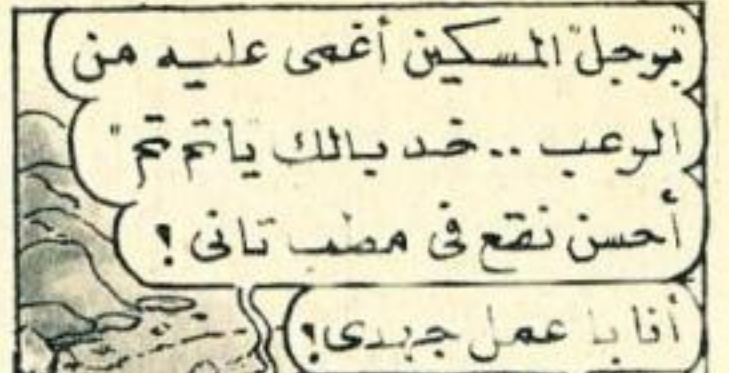 "بوجل" المسكين أغمى عليه من
الرعب .. خد بالك يا تم تم "
أحسن نقع فى مطب تانى !
أنا با عمل جهدى !